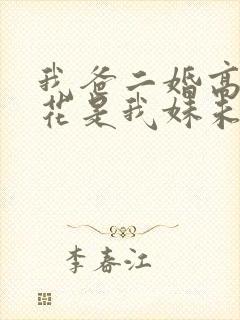 我爸二婚高
花是我妹未
李春江